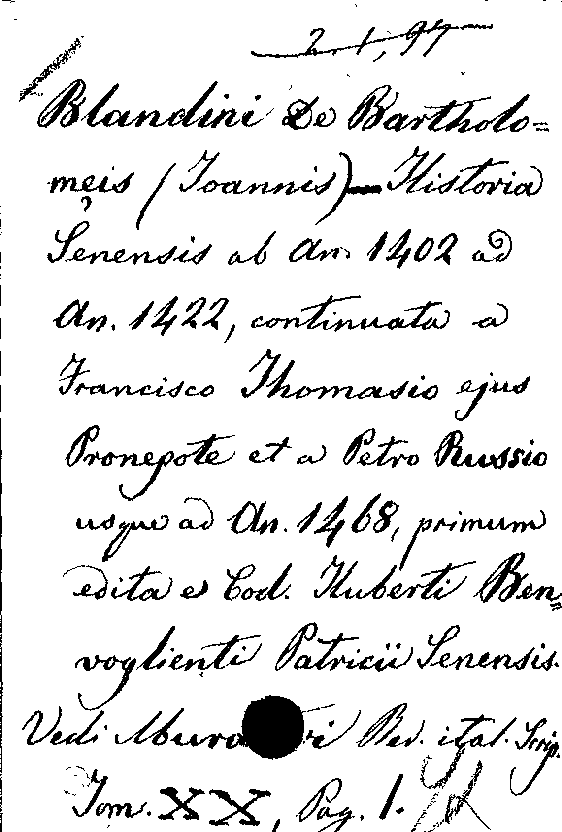 Blandini De Bartholo=
meis (Joannis) — Historia
Senensis ab An. 1402 ad
An. 1422, continuata a
Francisco Thomasio ejus
Pronepote et a Petro Russio
usque ad An. 1468, primum
edita e Cod. Huberti Ben=
voglienti Patricii Senensis.
Vedi ital. Scrip.
Tom. XX, Pag. 1.